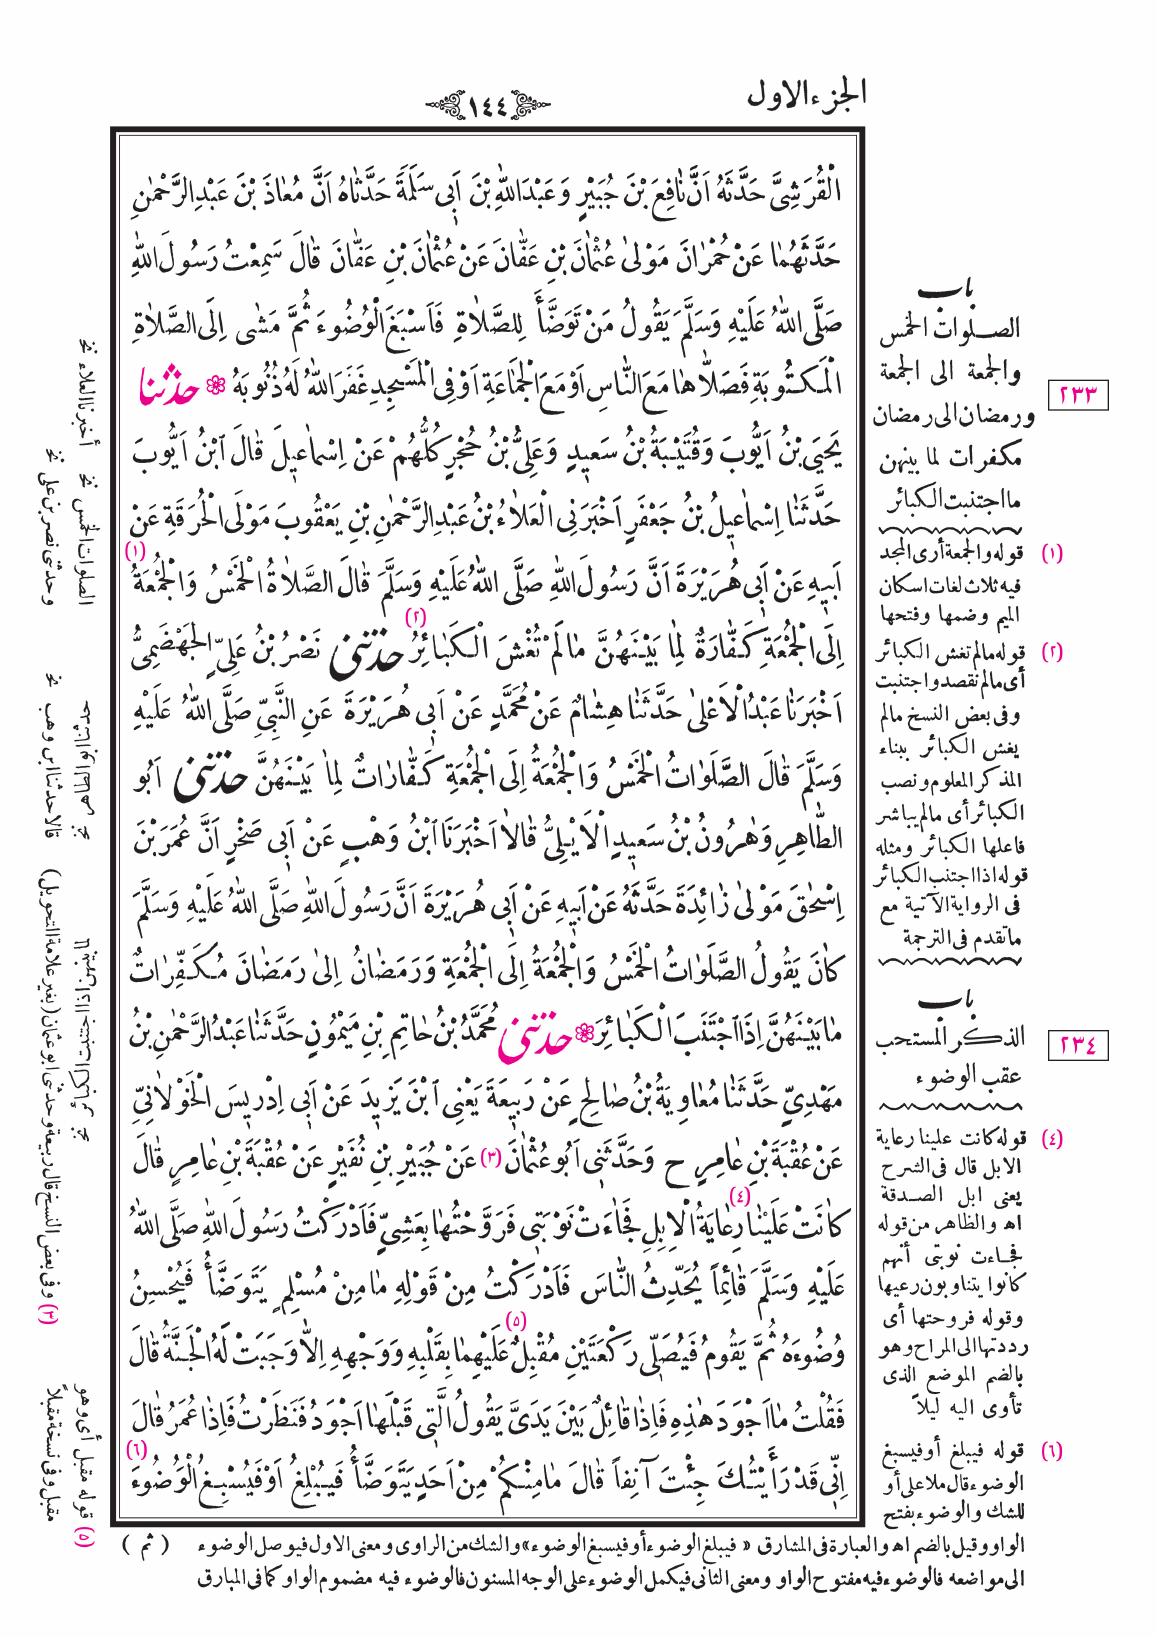 الجزء الاول
١٤٤
الْقُرَشِىَّ حَدَّثَهُ اَنَّ نَافِعَ بْنَ جُبَيْرٍ وَعَبْدَاللّٰهِ بْنَ اَبِى سَلَمَةَ حَدَّثَاهُ اَنَّ مُعَاذَ بْنَ عَبْدِالرَّحْمٰنِ
حَدَّثَهُمَا عَنْ حُمْرَانَ مَوْلىٰ عُثْمَانَ بْنِ عَفَّانَ عَنْ عُثْمَانَ بْنِ عَفَّانَ قَالَ سَمِعْتُ رَسُولَ اللّٰهِ
صَلَّى اللّٰهُ عَلَيْهِ وَسَلَّمَ يَقُولُ مَنْ تَوَضَّأَ لِلصَّلَاةِ فَاَسْبَغَ الْوُضُوءَ ثُمَّ مَشٰى اِلَى الصَّلَاةِ
الْمَكْتُوبَةِ فَصَلَّاهَا مَعَ النَّاسِ اَوْ مَعَ الْجَمَاعَةِ اَوْ فِى الْمَسْجِدِ غَفَرَ اللّٰهُ لَهُ ذُنُوبَهُ ۞ حدثنا
يَحْيَى بْنُ اَيُّوبَ وَقُتَيْبَةُ بْنُ سَعِيدٍ وَعَلِىُّ بْنُ حُجْرٍ كُلُّهُمْ عَنْ اِسْمَاعِيلَ قَالَ ابْنُ اَيُّوبَ
حَدَّثَنَا اِسْمَاعِيلُ بْنُ جَعْفَرٍ اَخْبَرَنِى الْعَلَاءُ بْنُ عَبْدِالرَّحْمٰنِ بْنِ يَعْقُوبَ مَوْلَى الْحُرَقَةِ عَنْ
اَبِيهِ عَنْ اَبِى هُرَيْرَةَ اَنَّ رَسُولَ اللّٰهِ صَلَّى اللّٰهُ عَلَيْهِ وَسَلَّمَ قَالَ الصَّلَاةُ الْخَمْسُ وَالْجُمْعَةُ (١)
اِلَى الْجُمْعَةِ كَفَّارَةٌ لِمَا بَيْنَهُنَّ مَالَمْ تُغْشَ الْكَبَائِرُ (٢) حدثنى نَصْرُ بْنُ عَلِىٍّ الْجَهْضَمِىُّ
اَخْبَرَنَا عَبْدُ الْاَعْلىٰ حَدَّثَنَا هِشَامٌ عَنْ مُحَمَّدٍ عَنْ اَبِى هُرَيْرَةَ عَنِ النَّبِىِّ صَلَّى اللّٰهُ عَلَيْهِ
وَسَلَّمَ قَالَ الصَّلَوَاتُ الْخَمْسُ وَالْجُمْعَةُ اِلَى الْجُمْعَةِ كَفَّارَاتٌ لِمَا بَيْنَهُنَّ حدثنى اَبُو
الطَّاهِرِ وَهٰرُونُ بْنُ سَعِيدٍ الْاَيْلِىُّ قَالَا اَخْبَرَنَا ابْنُ وَهْبٍ عَنْ اَبِى صَخْرٍ اَنَّ عُمَرَ بْنَ
اِسْحٰقَ مَوْلىٰ زَائِدَةَ حَدَّثَهُ عَنْ اَبِيهِ عَنْ اَبِى هُرَيْرَةَ اَنَّ رَسُولَ اللّٰهِ صَلَّى اللّٰهُ عَلَيْهِ وَسَلَّمَ
كَانَ يَقُولُ الصَّلَوَاتُ الْخَمْسُ وَالْجُمْعَةُ اِلَى الْجُمْعَةِ وَرَمَضَانُ اِلىٰ رَمَضَانَ مُكَفِّرَاتٌ
مَا بَيْنَهُنَّ اِذَا اجْتَنَبَ الْكَبَائِرَ ۞ حدثنى مُحَمَّدُ بْنُ حَاتِمِ بْنِ مَيْمُونٍ حَدَّثَنَا عَبْدُ الرَّحْمٰنِ بْنُ
مَهْدِىٍّ حَدَّثَنَا مُعَاوِيَةُ بْنُ صَالِحٍ عَنْ رَبِيعَةَ يَعْنِى ابْنَ يَزِيدَ عَنْ اَبِى اِدْرِيسَ الْخَوْلَانِىِّ
عَنْ عُقْبَةَ بْنِ عَامِرٍ ح وَحَدَّثَنِى اَبُو عُثْمَانَ (٣) عَنْ جُبَيْرِ بْنِ نُفَيْرٍ عَنْ عُقْبَةَ بْنِ عَامِرٍ قَالَ
كَانَتْ عَلَيْنَا رِعَايَةُ (٤) الْاِبِلِ فَجَاءَتْ نَوْبَتِى فَرَوَّحْتُهَا بِعَشِىٍّ فَاَدْرَكْتُ رَسُولَ اللّٰهِ صَلَّى اللّٰهُ
عَلَيْهِ وَسَلَّمَ قَائِماً يُحَدِّثُ النَّاسَ فَاَدْرَكْتُ مِنْ قَوْلِهِ مَا مِنْ مُسْلِمٍ يَتَوَضَّأُ فَيُحْسِنُ
وُضُوءَهُ ثُمَّ يَقُومُ فَيُصَلِّى رَكْعَتَيْنِ مُقْبِلٌ (٥) عَلَيْهِمَا بِقَلْبِهِ وَوَجْهِهِ اِلَّا وَجَبَتْ لَهُ الْجَنَّةُ قَالَ
فَقُلْتُ مَا اَجْوَدَ هٰذِهِ فَاِذَا قَائِلٌ بَيْنَ يَدَىَّ يَقُولُ الَّتِى قَبْلَهَا اَجْوَدُ فَنَظَرْتُ فَاِذَا عُمَرُ قَالَ
اِنِّى قَدْ رَأَيْتُكَ جِئْتَ آنِفاً قَالَ مَا مِنْكُمْ مِنْ اَحَدٍ يَتَوَضَّأُ فَيُبْلِغُ اَوْ فَيُسْبِغُ الْوُضُوءَ (٦)
باب
الصلوات الخمس
والجمعة الى الجمعة
ورمضان الى رمضان
مكفرات لما بينهن
ما اجتنبت الكبائر
٢٣٣
(١) قوله والجمعة أرى المجد
فيه ثلاث لغات اسكان
الميم وضمها وفتحها
(٢) قوله مالم تغش الكبائر
أى مالم تقصد واجتنبت
وفى بعض النسخ مالم
يغش الكبائر ببناء
المذكر المعلوم ونصب
الكبائر أى مالم يباشر
فاعلها الكبائر ومثله
قوله اذا اجتنب الكبائر
فى الرواية الآتية مع
ما تقدم فى الترجمة
باب
الذكر المستحب
عقب الوضوء
٢٣٤
(٤) قوله كانت علينا رعاية
الابل قال فى الشرح
يعنى ابل الصدقة
اه والظاهر من قوله
فجاءت نوبتى أنهم
كانوا يتناوبون رعيها
وقوله فروحتها أى
رددتها الى المراح وهو
بالضم الموضع الذى
تأوى اليه ليلاً
(٦) قوله فيبلغ أو فيسبغ
الوضوء قال ملا على أو
للشك والوضوء بفتح
الواو وقيل بالضم اه والعبارة فى المشارق « فيبلغ الوضوء أو فيسبغ الوضوء » والشك من الراوى ومعنى الاول فيوصل الوضوء ( ثم )
الى مواضعه فالوضوء فيه مفتوح الواو ومعنى الثانى فيكمل الوضوء على الوجه المسنون فالوضوء فيه مضموم الواو كما فى المبارق
أخبرنا العلاء نخ
الصلوات الخمس نخ
وحدثنى نصر بن على نخ
قالا حدثنا ابن وهب نخ
(٣) وفى بعض النسخ قال ربيعة وحدثنى ابو عثمان (بغير علامة التحويل)
(٥) قوله مقبل أى وهو
مقبل وفى نسخة مقبلاً